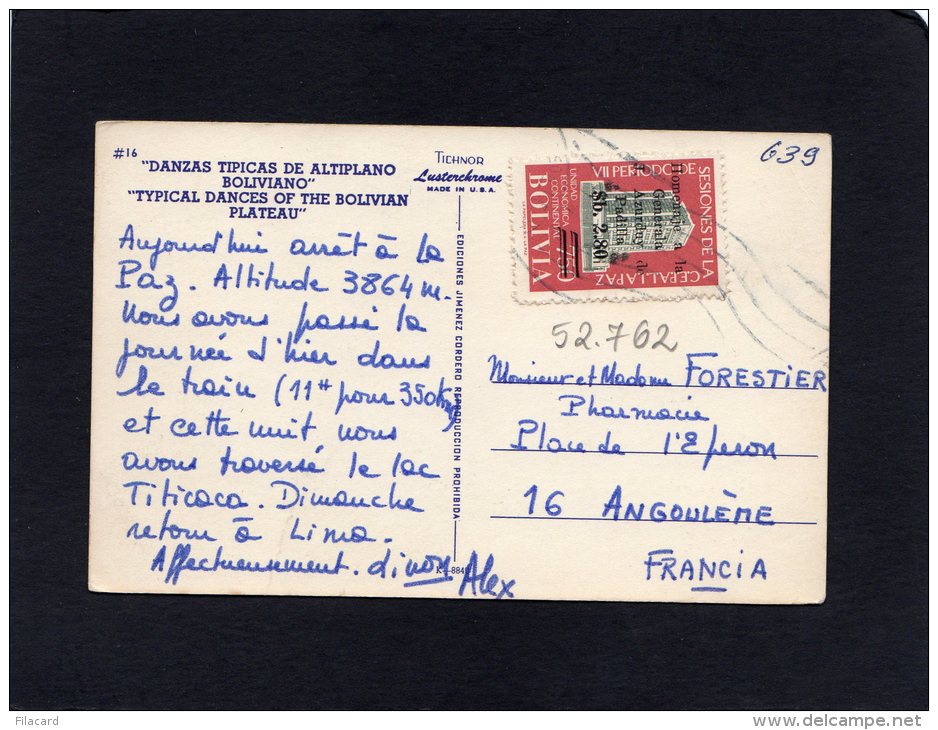 #16
"DANZAS TIPICAS DE ALTIPLANO
BOLIVIANO"
"TYPICAL DANCES OF THE BOLIVIAN
PLATEAU"
TICHNOR
Lusterchrome
MADE IN U.S.A.
Aujourd'hui arrêt à La
Paz. Altitude 3864 m.
Nous avons passé la
journée d'hier dans
le train (11H pour 350 km)
et cette nuit nous
avons traversé le lac
Titicaca. Dimanche
retour à Lima.
Affectueusement. Alex
EDICIONES JIMENEZ CORDERO REPRODUCCION PROHIBIDA
639
VII PERIODO DE
SESIONES DE LA
C.E.P.A.L. LA PAZ
UNIDAD
ECONOMICA
CONTINENTAL
BOLIVIA
Homenaje a la
Generala
J. Azurduy de
Padilla
$b. 2.80
52.762
Monsieur et Madame FORESTIER
Pharmacie
Place de l'Eperon
16 ANGOULÈME
FRANCIA
Filacard
delcampe.net